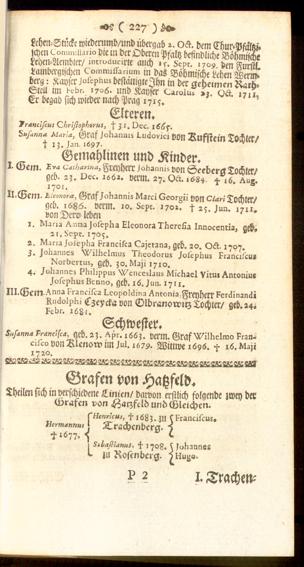 ( 227 )
Lehen-Stücke wiederumb/ und übergab 2. Oct. dem Chur-Pfältzi-
schen Commissario die in der Obern Pfaltz befindliche Böhmische
Lehen-Aembter/ introducirte auch 15. Sept. 1709. den Fürstl.
Lambergischen Commissarium in das Böhmische Lehen Wern-
berg: Kayser Josephus bestättigte Ihn in der geheimen Rath-
Stell im Febr. 1706. und Kayser Carolus 23. Oct. 1711.
Er begab sich wieder nach Prag 1715.
Elteren.
Franciscus Christophorus, † 31. Dec. 1665.
Susanna Maria, Graf Johannis Ludovici von Kuffstein Tochter/
† 13. Jan. 1697.
Gemahlinen und Kinder.
I. Gem. Eva Catharina, Freyherr Johannis von Seeberg Tochter/
geb. 23. Dec. 1662. verm. 27. Oct. 1684. † 16. Aug.
1701.
II. Gem. Eleonora, Graf Johannis Marci Georgii von Clari Tochter/
geb. 1686. verm. 10. Sept. 1702. † 25. Jun. 1711.
von Dero leben
1. Maria Anna Josepha Eleonora Theresia Innocentia, geb.
21. Sept. 1705.
2. Maria Josepha Francisca Cajetana, geb. 20. Oct. 1707.
3. Johannes Wilhelmus Theodorus Josephus Franciscus
Norbertus, geb. 30. Maji 1710.
4. Johannes Philippus Wenceslaus Michael Vitus Antonius
Josephus Benno, geb. 16. Jun. 1711.
III. Gem. Anna Francisca Leopoldina Antonia, Freyherr Ferdinandi
Rudolphi Czeycka von Olbranowitz Tochter/ geb. 24.
Febr. 1681.
Schwester.
Susanna Francisca, geb. 23. Apr. 1663. verm. Graf Wilhelmo Fran-
cisco von Klenow im Jul. 1679. Wittwe 1696. † 16. Maji
1720.
Grafen von Hatzfeld.
Theilen sich in verschidene Linien/ darvon erstlich folgende zwey der
Grafen von Hatzfeld und Gleichen.
Hermannus † 1677.
Henricus, † 1683. zu Trachenberg. Franciscus.
Sebastianus. † 1708. zu Rosenberg. Johannes Hugo.
P 2 I. Trachen-